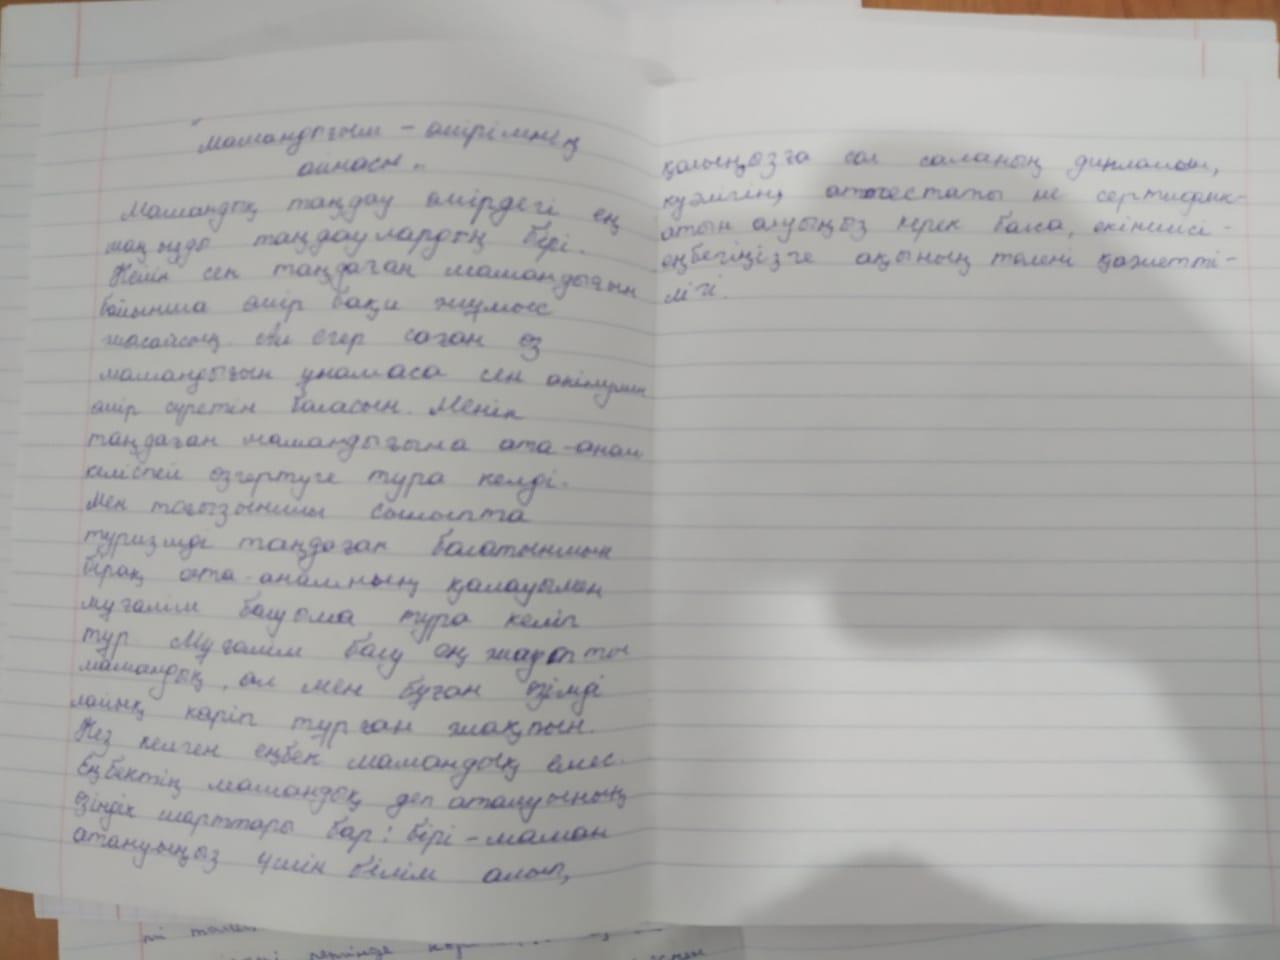 "Мамандығым - өмірімнің
айнасы"
Мамандық таңдау өмірдегі ең
маңызды таңдаулардың бірі.
Кейін сен таңдаған мамандығын
бойынша өмір бақи жұмыс
жасайсың. Ал егер саған өз
мамандығын ұнамаса сен өкінумен
өмір сүретін боласын. Менің
таңдаған мамандығыма ата-анам
келіспей өзгертуге тура келді.
Мен тоғызыншы сыныпта
туризмді таңдаған болатынмын
бірақ ата-анамның қалауымен
мұғалім болуыма тура келіп
тұр. Мұғалім болу ең жауапты
мамандық, ал мен бұған өзімді
лайық көріп тұрған жақпын.
Кез келген еңбек мамандық емес.
Еңбектің мамандық деп аталуының
өзіндік шарттары бар: бірі - маман
атануыңыз үшін білім алып,
қолыңызға сол саланың дипломын,
куәлігін, аттестаты не сертифик-
атын алуыңыз керек болса, екіншісі -
еңбегіңізге ақының төлені қажетті-
лігі.